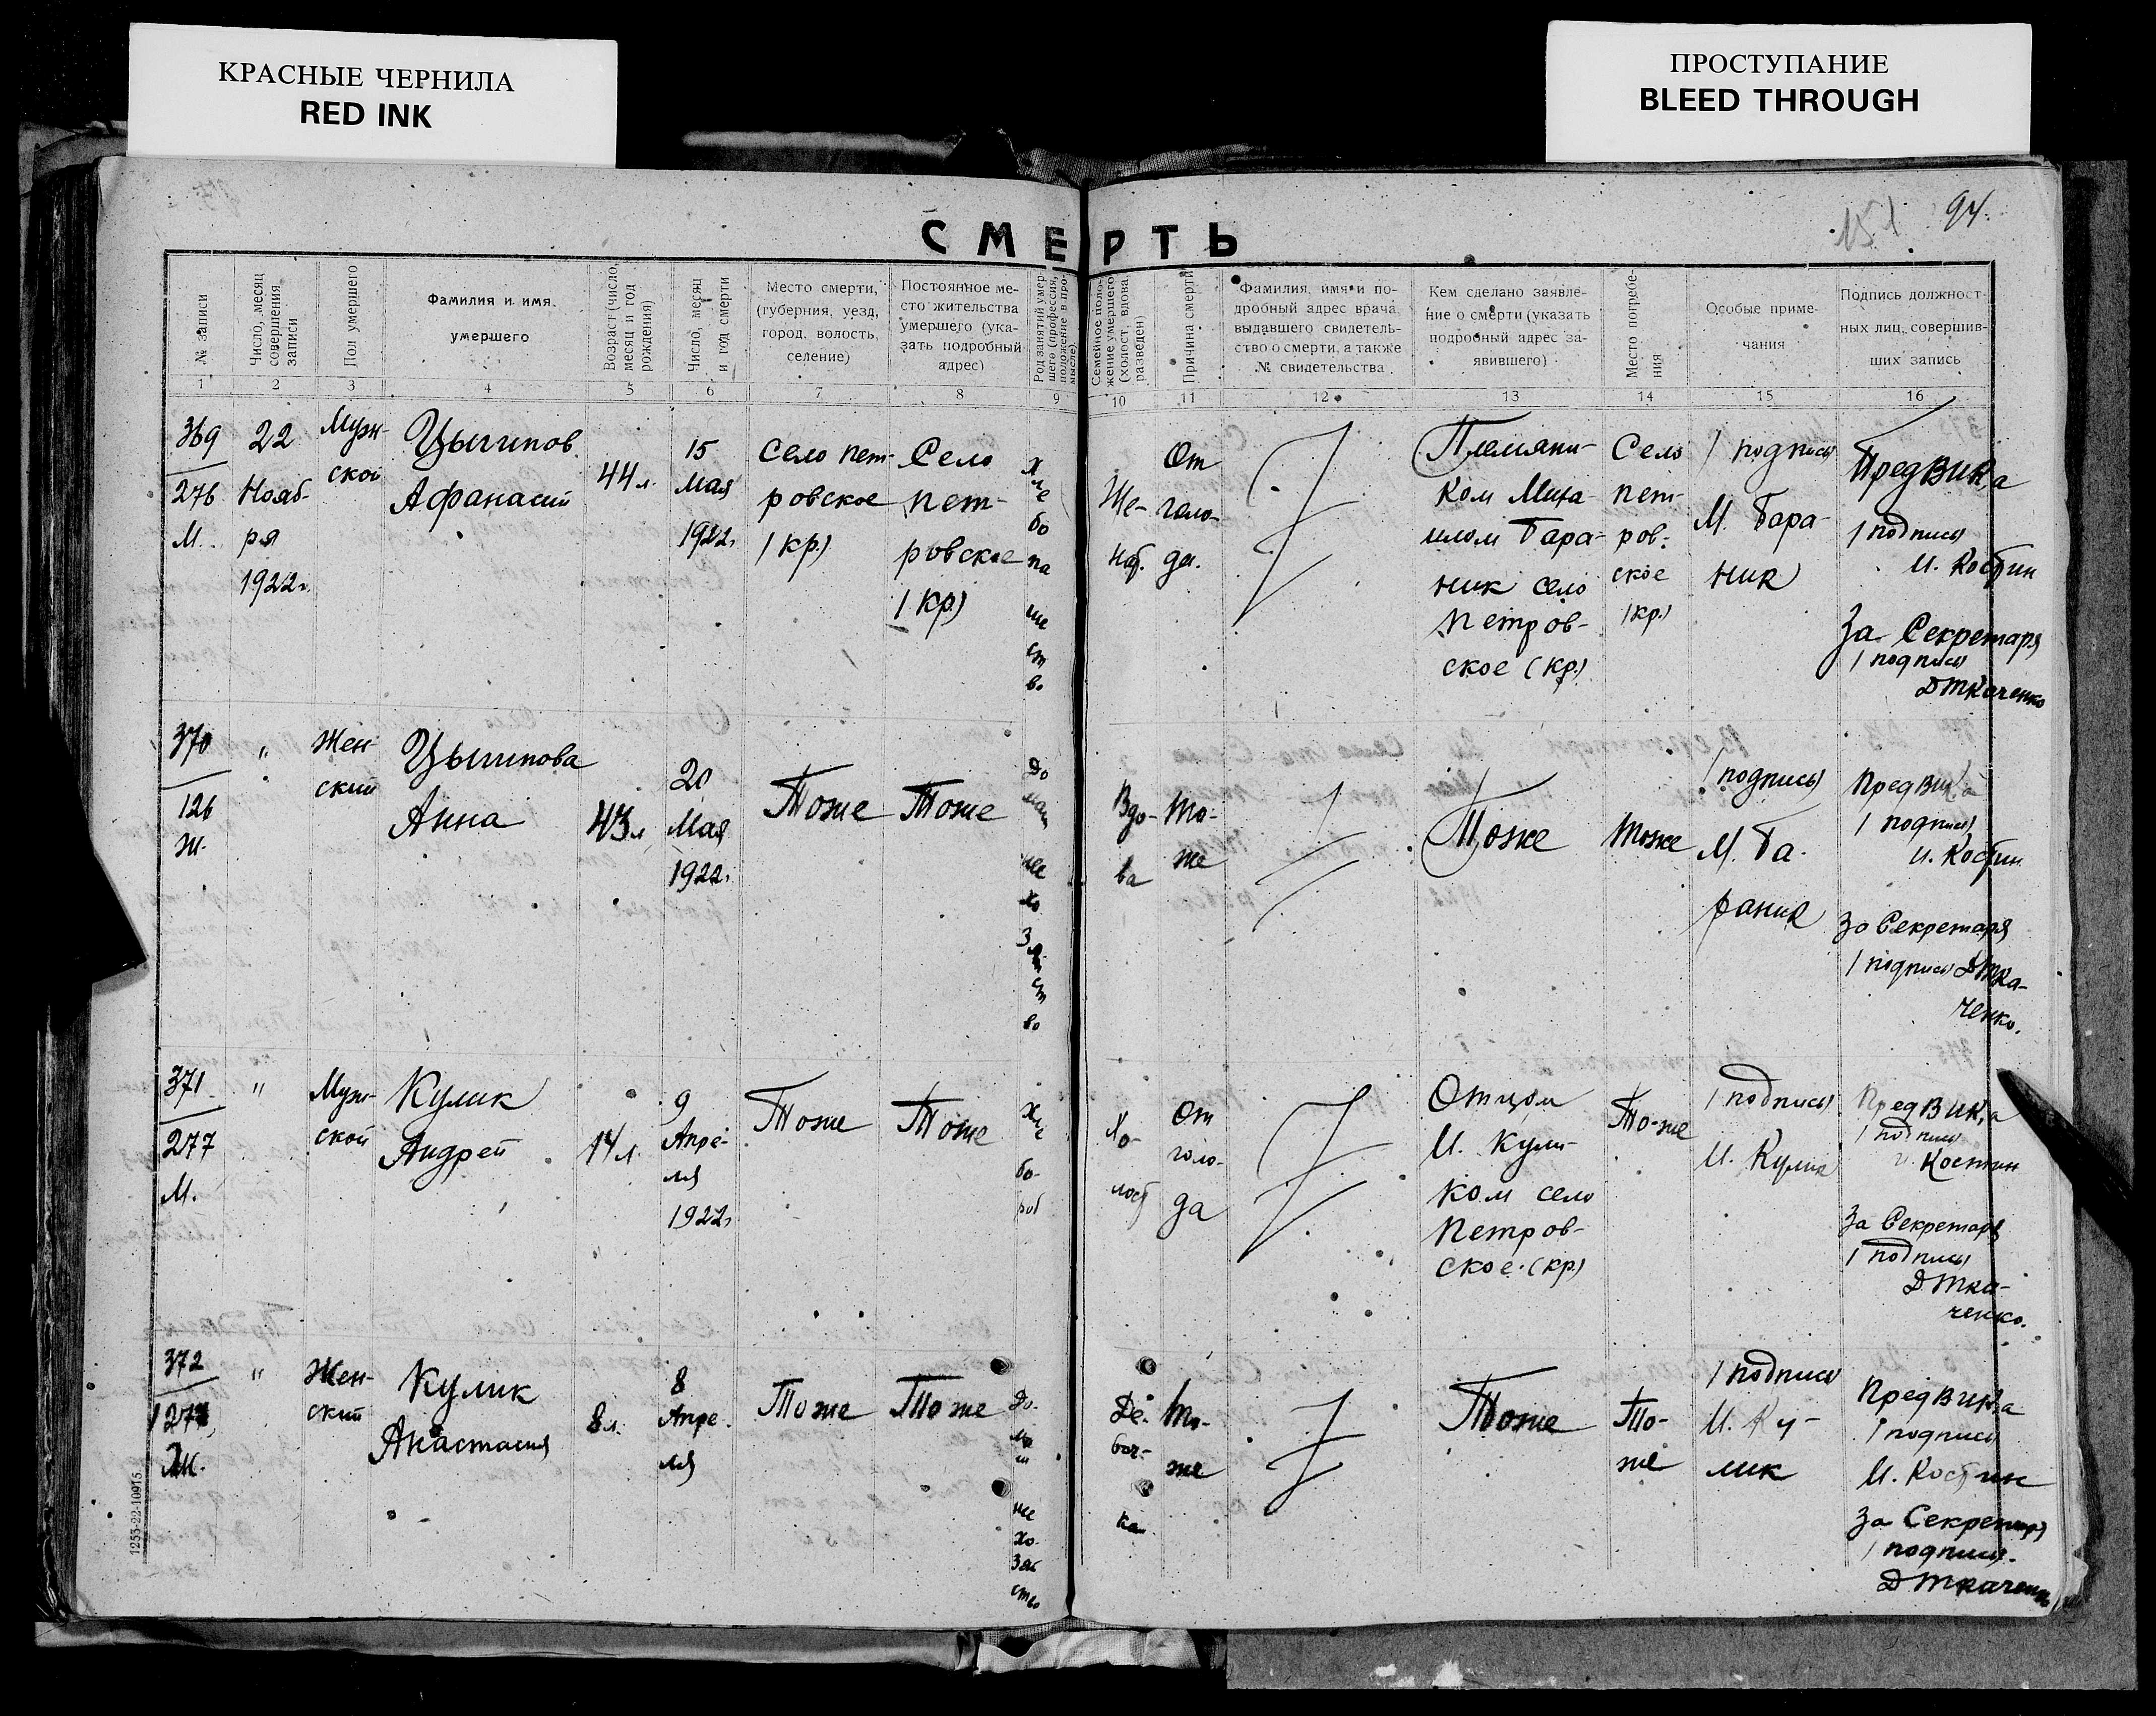 КРАСНЫЕ ЧЕРНИЛА
RED INK
ПРОСТУПАНИЕ
BLEED THROUGH
151
94.
СМЕРТЬ
№ записи
Число, месяц
совершения
записи
Пол умершего
Фамилия и имя
умершего
Возраст (число,
месяц и год
рождения)
Число, месяц
и год смерти
Место смерти,
(губерния, уезд,
город, волость,
селение)
Постоянное ме-
сто жительства
умершего (ука-
зать подробный
адрес)
Род занятий умер-
шего (профессия,
положение в про-
мысле)
Семейное поло-
жение умершего
(холост, вдова,
разведен)
Причина смерти
Фамилия, имя и по-
дробный адрес врача,
выдавшего свидетель-
ство о смерти, а также
№ свидетельства
Кем сделано заявле-
ние о смерти (указать
подробный адрес за-
явившего)
Место погребе-
ния
Особые приме-
чания
Подпись должност-
ных лиц, совершив-
ших запись
1 2 3 4 5 6 7 8 9 10 11 12 13 14 15 16
369
276
М.
22
Нояб-
ря
1922г.
Муж-
ской
Афанасий
44 л.
15
Мая
1922г.
Село Пет-
ровское
(кр.)
Село
Пет-
ровское
(кр)
хле
бо
па
ше
ст
во
Же-
нат.
От
голо-
да.
Племяни-
ком Миха-
илом Бара-
ник село
Петров-
ское (кр.)
Село
Пет-
ров-
ское
(кр.)
(подпись)
М. Бара-
ник
ПредВИК,а
(подпись)
И. Костин
За Секретаря
(подпись)
ДТкаченко
370
126
Ж.
"
Жен-
ский
Анна
43 л
20
Мая
1922г.
Тоже
Тоже
до
маш
не
хо
зяй
ст
во
Вдо-
ва
То-
же
Тоже
Тоже
(подпись)
М. Ба-
раник
ПредВИКа
(подпись)
И. Костин
За Секретаря
(подпись) ДТка-
ченко.
371
277
М.
"
Муж-
ской
Кулик
Андрей
14 л.
9
Апре-
ля
1922г
Тоже
Тоже
хле
бо-
роб
Хо-
лост
От
голо-
да
Отцом
И. Кули-
ком село
Петров-
ское (кр.)
То-же
(подпись)
И. Кулик
ПредВИК,а
(подпись)
И. Костин
За Секретаря
(подпись)
ДТка-
ченко.
372
"
Жен-
ский
Кулик
Анастасия
8 л.
8
Апре-
ля
Тоже
Тоже
до-
ма
ш
не
хо-
зяй
ство
Де-
воч-
ка
То-
же
Тоже
То-
же
(подпись)
И. Ку-
лик
ПредВИК,а
(подпись)
И. Костин
За Секретаря
(подпись)
ДТкаченко
1255-22-10915.